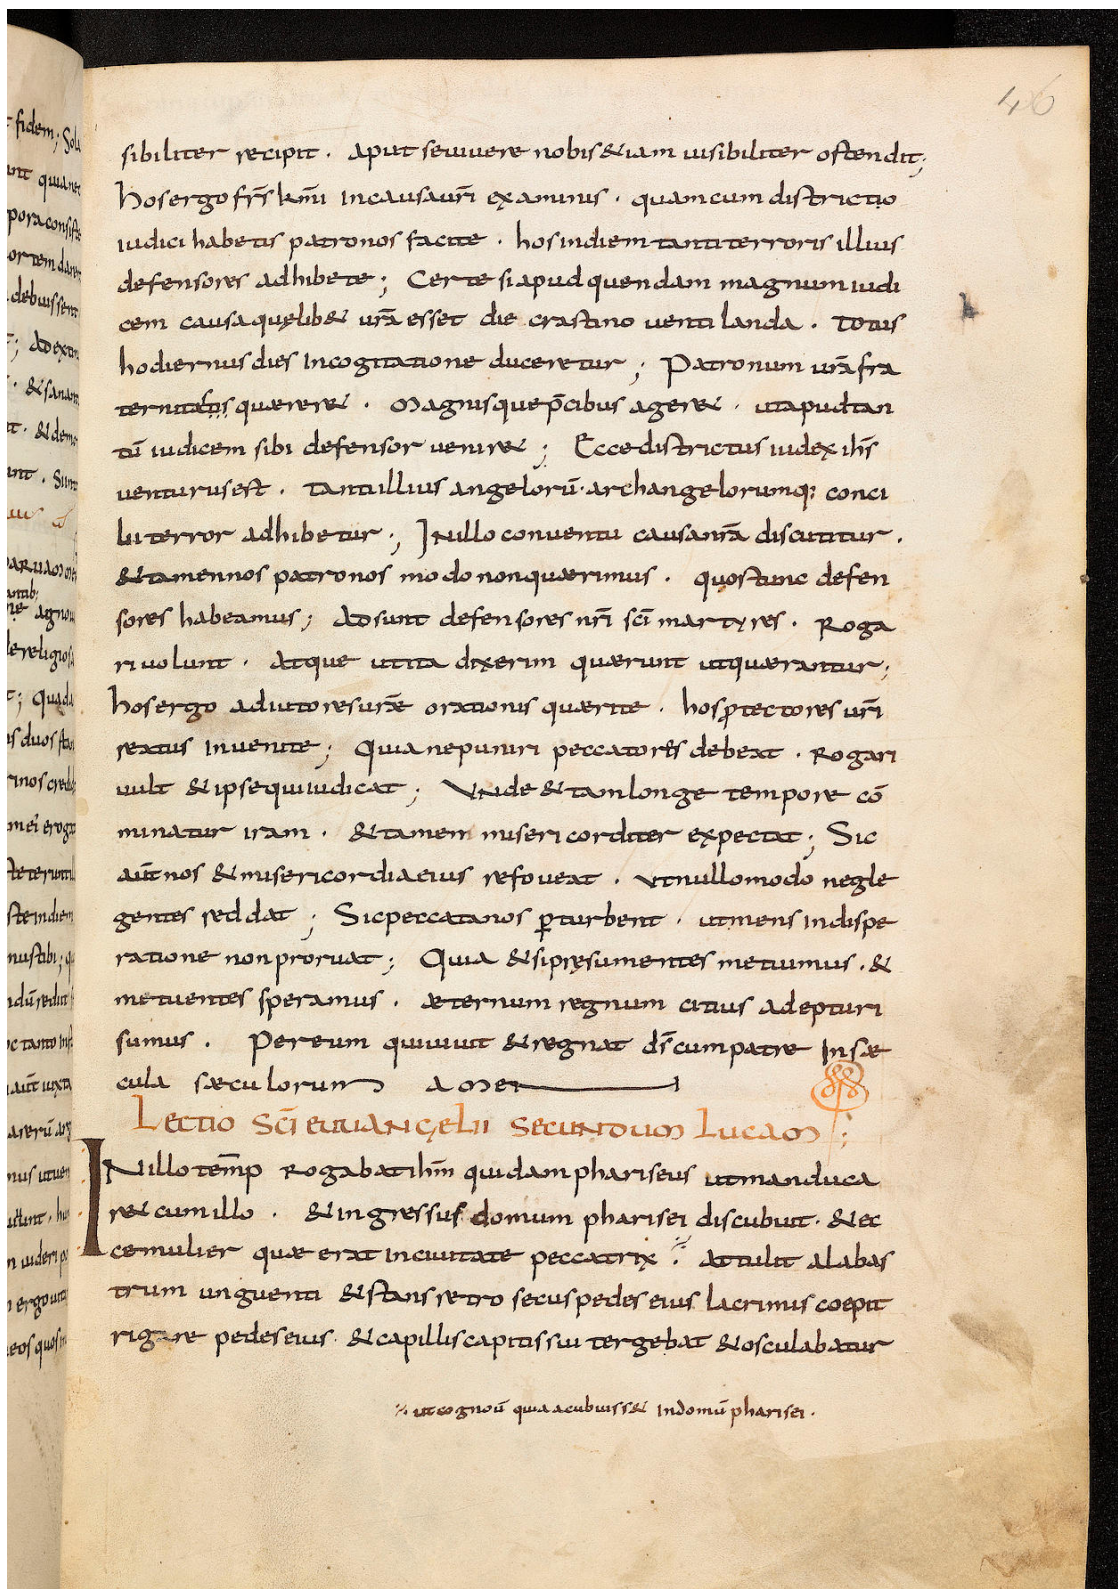 46
sibiliter recipit . aput se vivere nobis &iam visibiliter ostendit;
hos ergo fr̄s km̄i in causa ur̄i examinis . quam cum districtio
iudici habetis patronos facite . hos in diem tanti terroris illius
defensores adhibete ; Certe si apud quendam magnum iudi
cem causa quęlib& ur̄a esset die crastino ventilanda . totus
hodiernus dies in cogitatione duceretur ; Patronum ur̄a fra
ternitas quærer& . magnisque p̄cibus ager& . ut apud tan
tū iudicem sibi defensor venir& ; Ecce districtus iudex ih̄s
venturus est . tanti illius angelorū . archangelorumq; conci
lii terror adhibetur ; In illo conventu causa nr̄a discutitur .
&tamen nos patronos modo non quærimus . quos tunc defen
sores habeamus ; adsunt defensores nr̄i sc̄i martyres . Roga
ri volunt . atque ut ita dixerim quærunt ut quærantur ;
hos ergo adiutores urǣ orationis quærite . hos ꝓtectores ur̄i
reatus invenite ; Quia ne puniri peccatores debeat . Rogari
vult &ipse qui iudicat ; Unde &tam longe tempore cō
minatur iram . &tamen misericorditer expectat ; Sic
aūt nos &misericordia eius refoveat . ut nullo modo negle
gentes reddat ; Sic peccata nos ꝑturbent . ut mens in dispe
ratione non proruat ; Quia &si pręsumentes metuimus . &
metuentes speramus . æternum regnum citius adepturi
sumus . Per eum qui vivit &regnat ds̄ cum patre in sæ
cula sæculorum amen
Lectio sc̄i euuangelii secundum lucam ;
IN illo temp̄ Rogabat ihm̄ quidam phariseus ut manduca
r& cum illo . &ingressus domum pharisei discubuit . &ec
ce mulier quæ erat in civitate peccatrix attulit alabas
trum unguenti &stans retro secus pedes eius lacrimis coepit
rigare pedes eius . &capillis capitis sui tergebat &osculabatur
ut cognoū quia acubuiss& in domū pharisei .